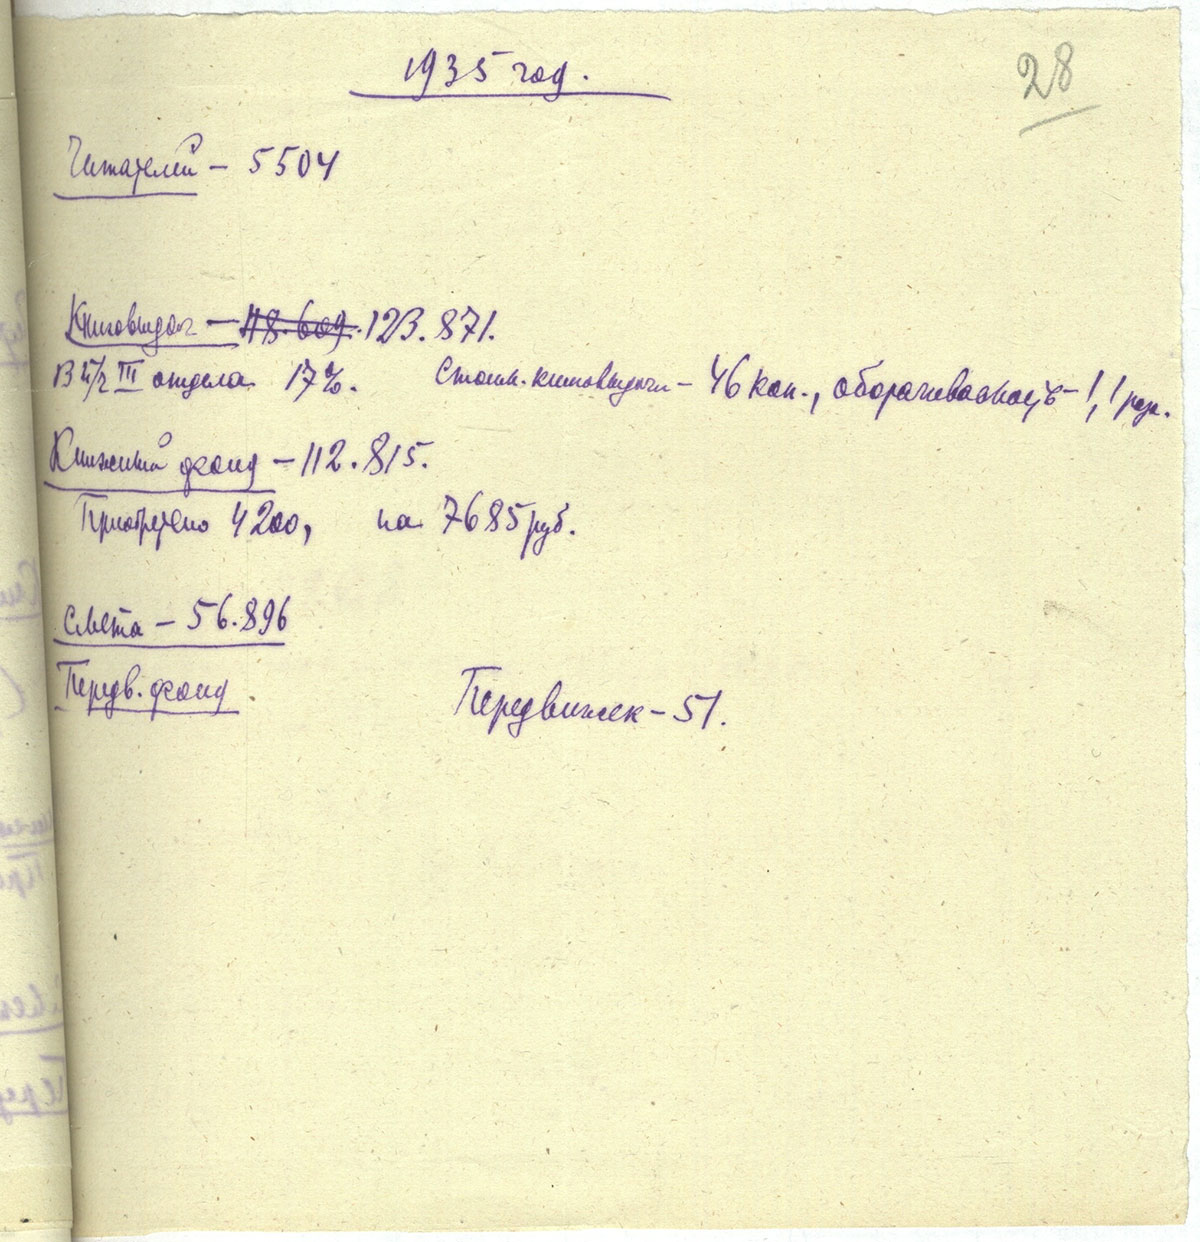 1935 год.
28
Читателей – 5504
Книговыдач – 118.609. 123.871.
В т/ч III отдела 17%. Стоим. книговыдачи – 46 коп., оборачиваемость – 1,1 раз.
Книжный фонд – 112.815.
Приобретено 4200, на 7685 руб.
Смета – 56.896
Передв. фонд
Передвижек – 51.